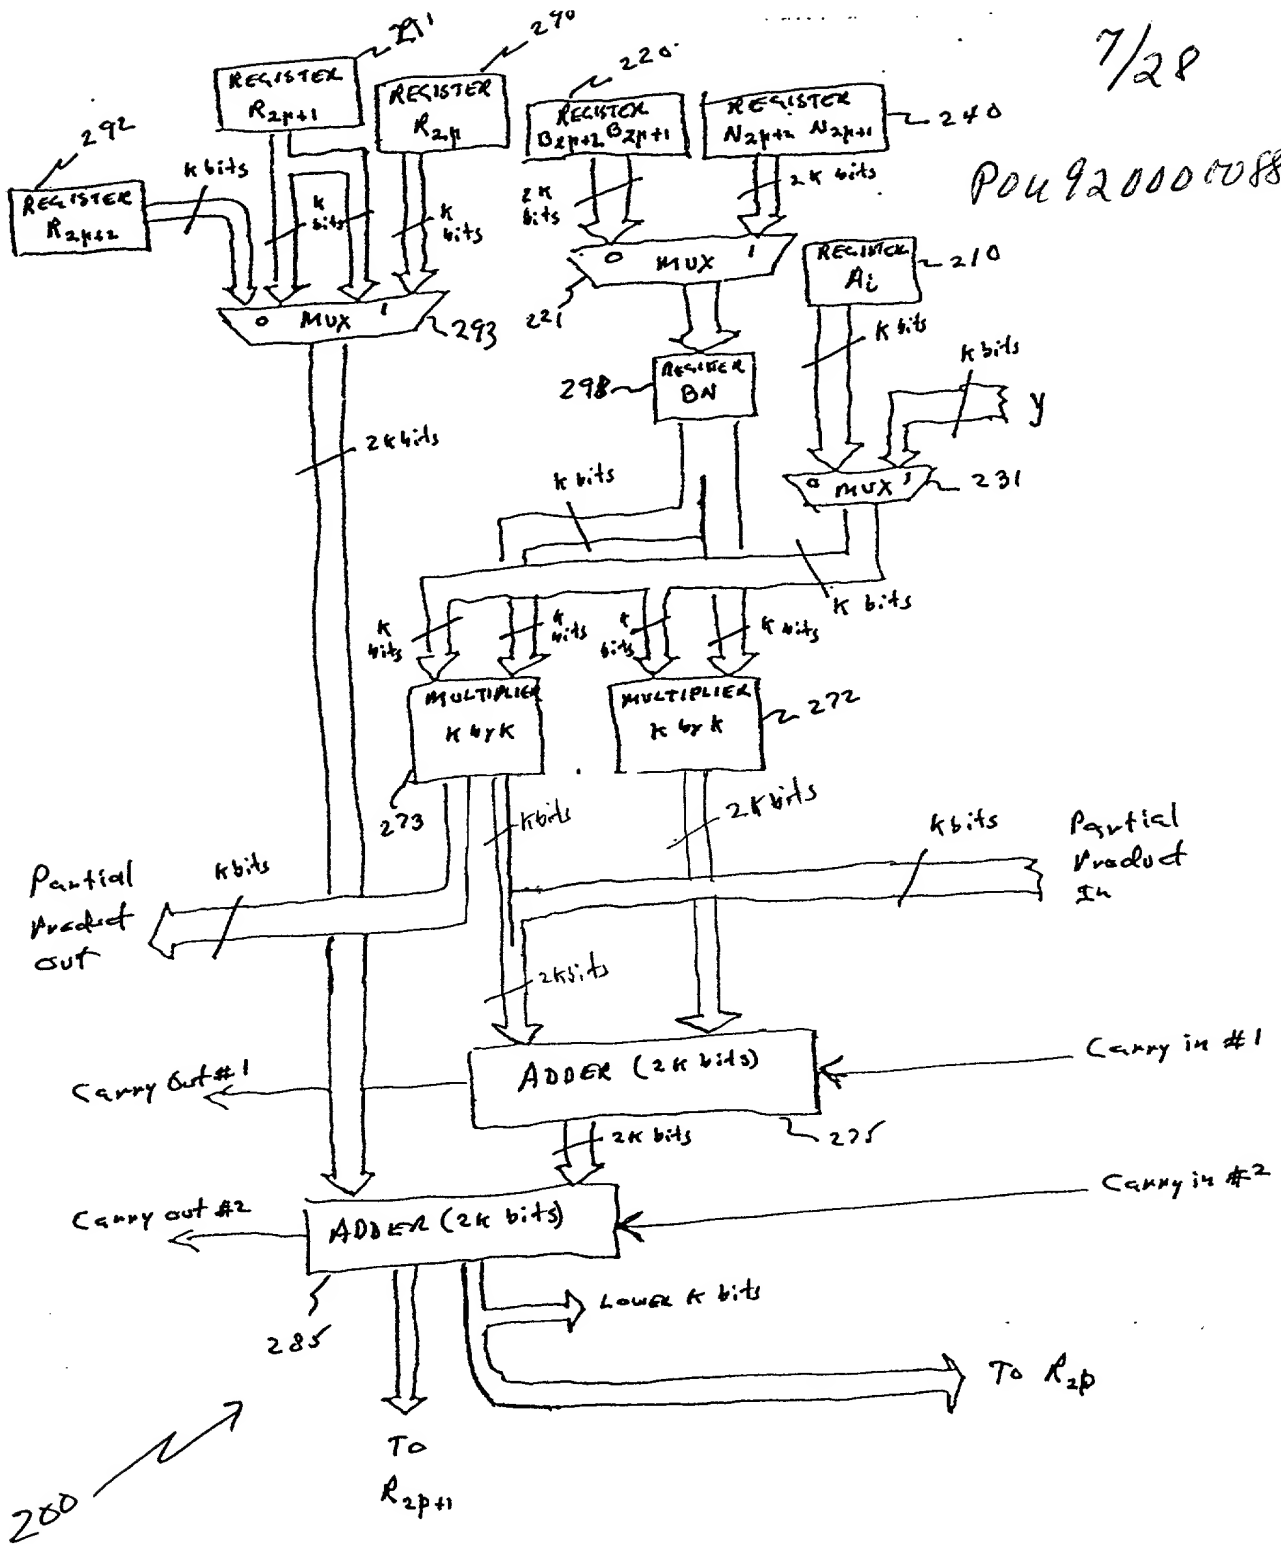 7/28
POU920000088
291
290
220
292
REGISTER
R2p+1
REGISTER
R2p
REGISTER
B2p+2 B2p+1
REGISTER
N2p+2 N2p+1
240
REGISTER
R2p+2
k bits
k
bits
k
bits
2k
bits
2k bits
0 MUX 1
293
0 MUX 1
221
REGISTER
Ai
210
k bits
k bits
y
298
REGISTER
BN
2k bits
0 MUX 1
231
k bits
k bits
k
bits
k
bits
k
bits
k bits
MULTIPLIER
k by k
273
MULTIPLIER
k by k
272
k bits
2k bits
k bits
Partial
Product
In
Partial
Product
out
k bits
2k bits
ADDER (2k bits)
275
Carry in #1
Carry out #1
2k bits
Carry in #2
Carry out #2
ADDER (2k bits)
285
LOWER k bits
To R2p
To
R2p+1
200